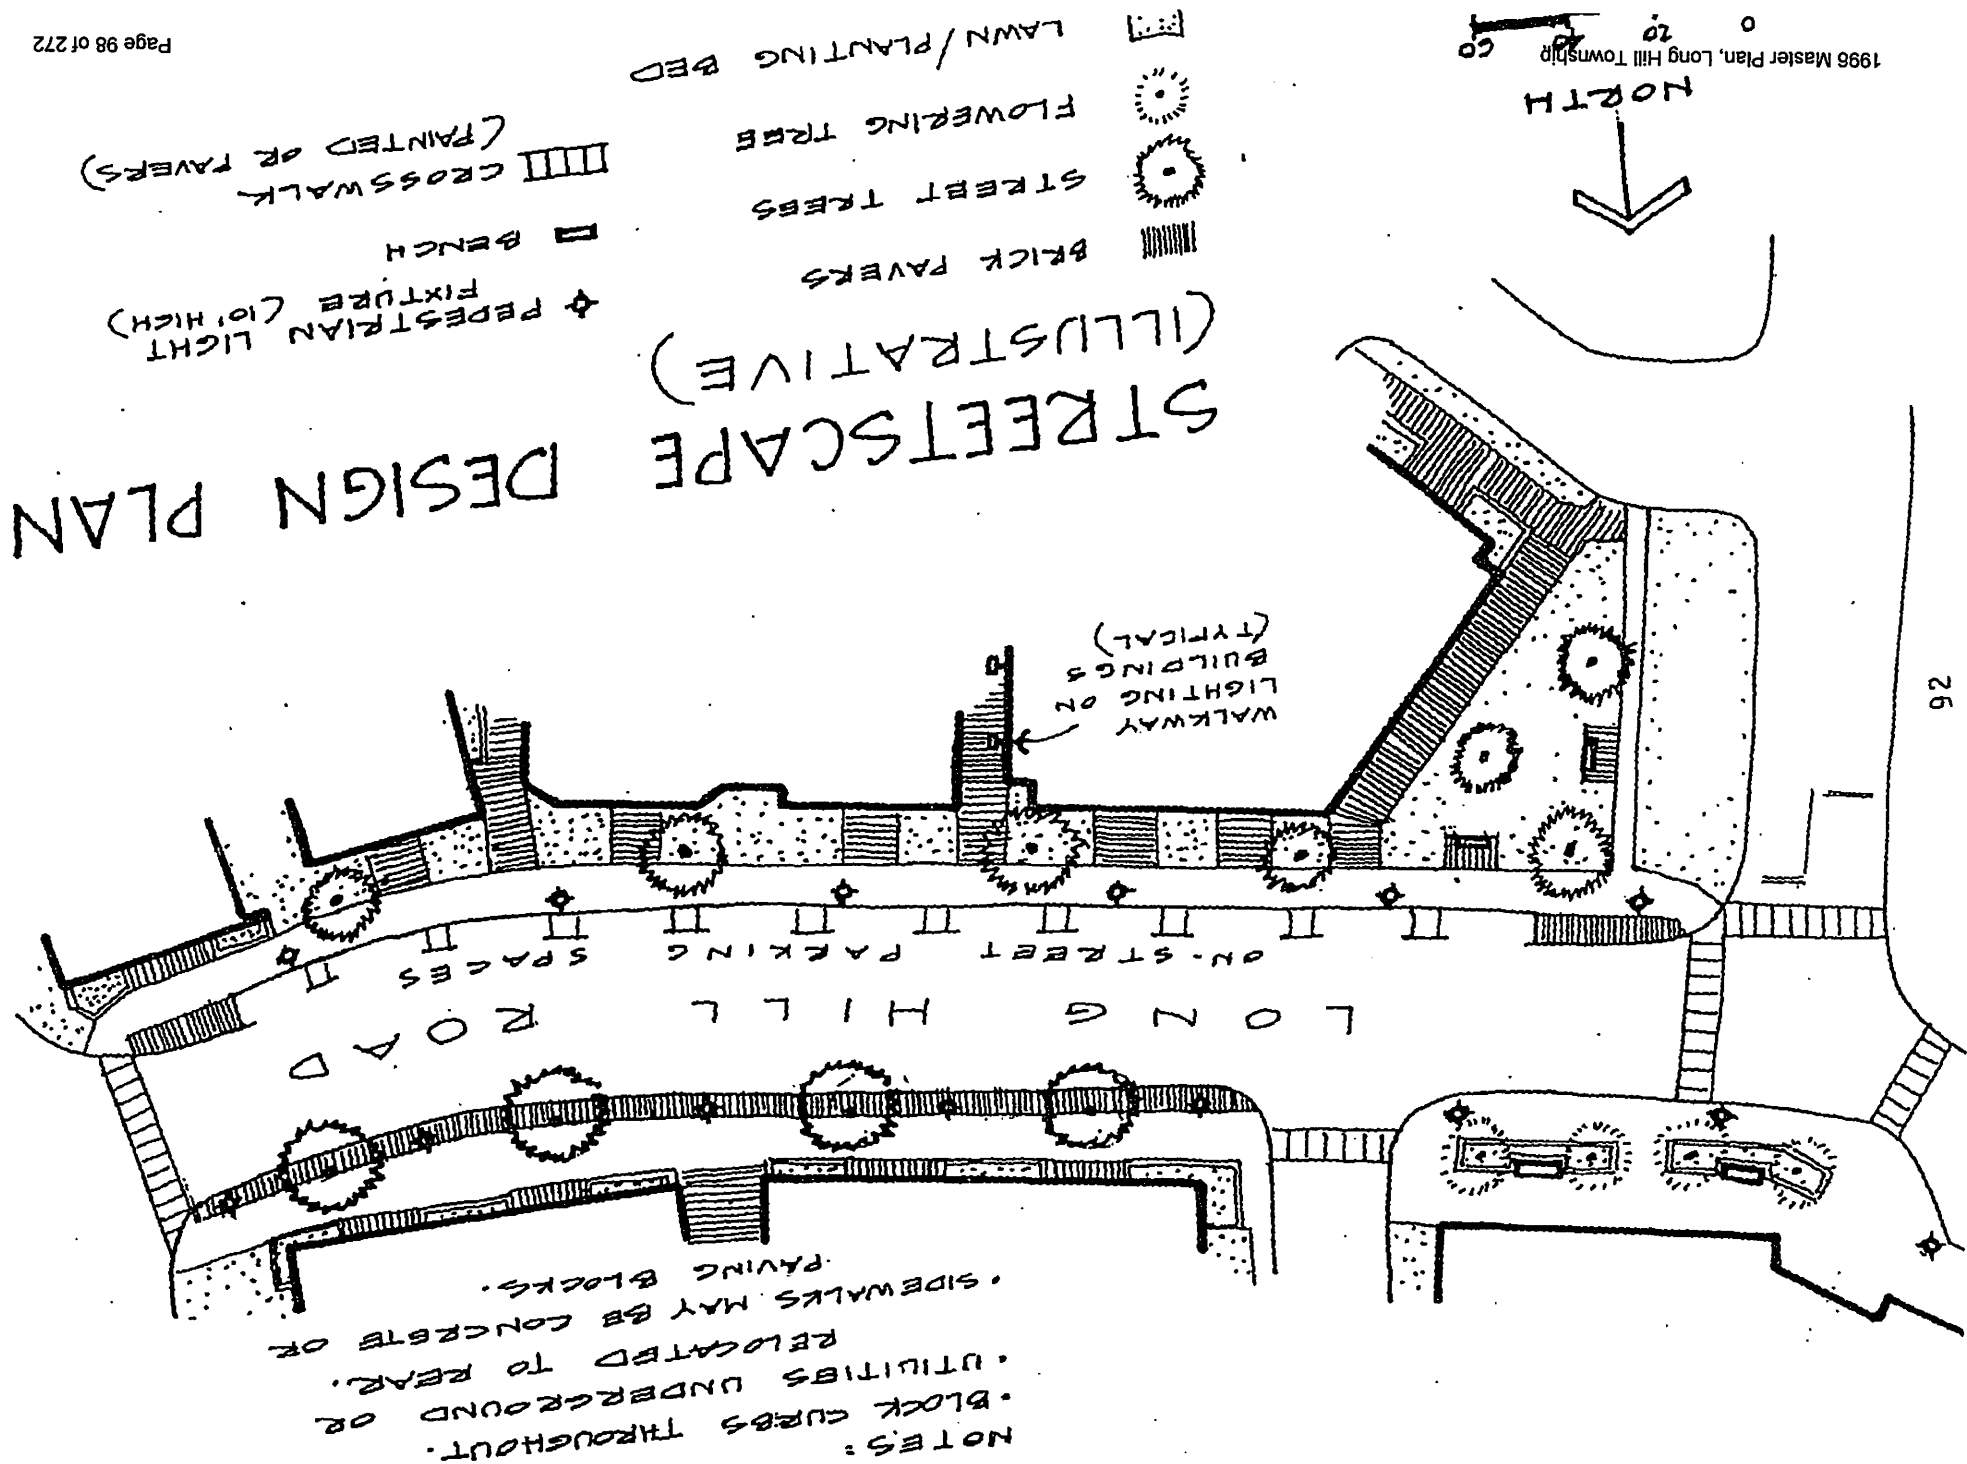 NOTES:
• BLOCK CURBS THROUGHOUT.
• UTILITIES UNDERGROUND OR
RELOCATED TO REAR.
• SIDEWALKS MAY BE CONCRETE OR
PAVING BLOCKS.
LONG HILL ROAD
ON-STREET PARKING SPACES
WALKWAY
LIGHTING ON
BUILDINGS
(TYPICAL)
92
STREETSCAPE DESIGN PLAN
(ILLUSTRATIVE)
BRICK PAVERS
STREET TREES
FLOWERING TREE
LAWN/PLANTING BED
PEDESTRIAN LIGHT
FIXTURE (10' HIGH)
BENCH
CROSSWALK
(PAINTED OR PAVERS)
NORTH
0 20 40 60
1996 Master Plan, Long Hill Township
Page 98 of 272